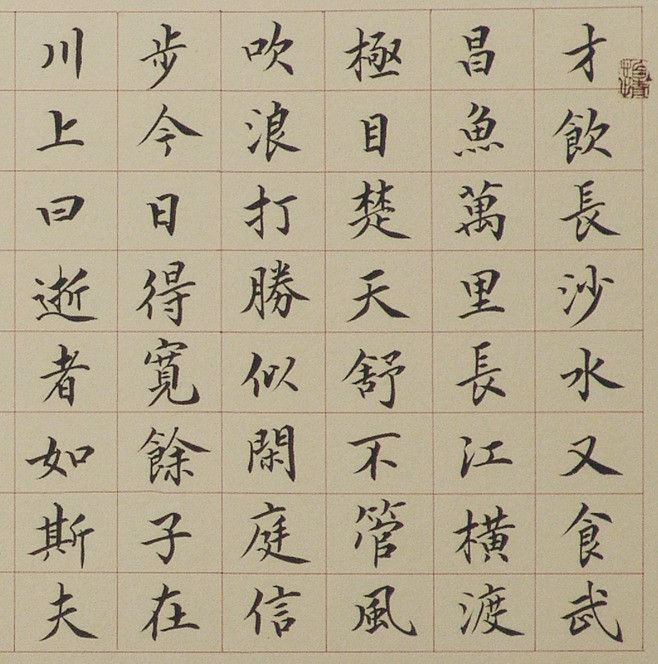 才飲長沙水又食武
昌魚萬里長江橫渡
極目楚天舒不管風
吹浪打勝似閑庭信
步今日得寬餘子在
川上曰逝者如斯夫